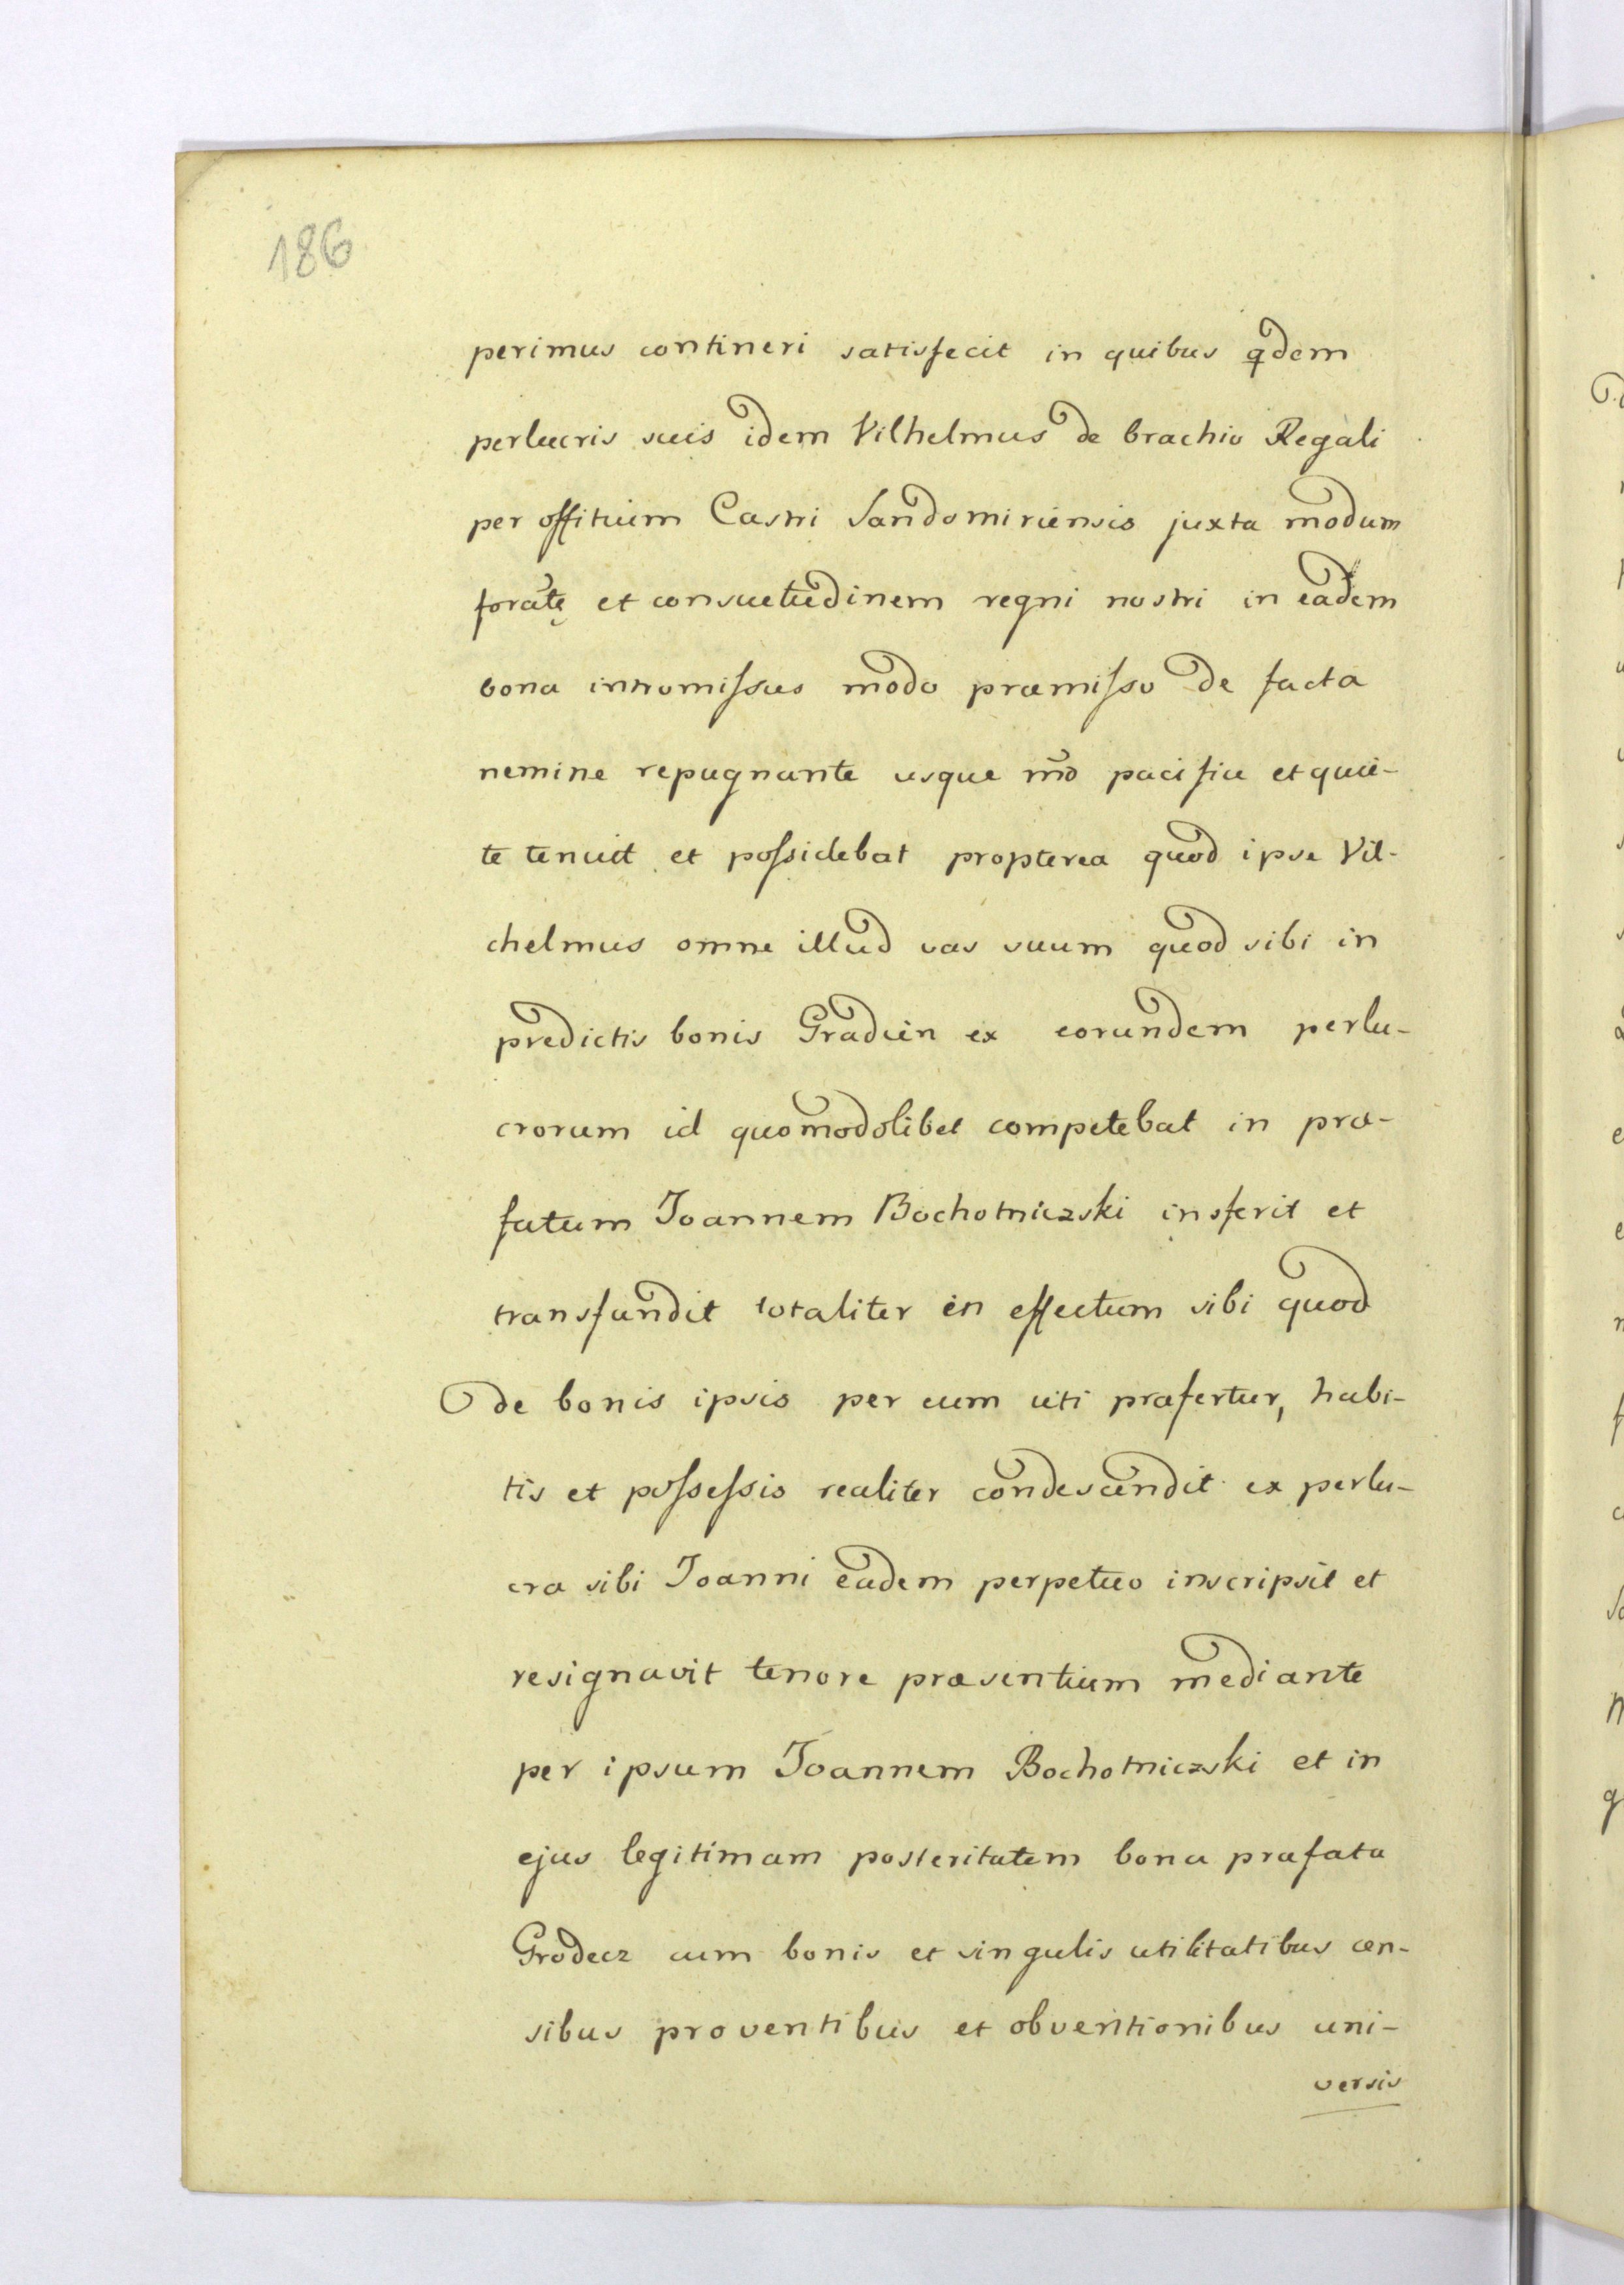 186
perimus contineri satisfecit in quibus qdem
perlucris suis idem Vilhelmus de brachio Regali
per offitium Castri Sandomiriensis juxta modum
et consuetudinem regni nostri in eadem
bona intromissus modo præmisso de facta
nemine repugnante usque mo pacifice et quie-
te tenuit et possidebat propterea quod ipse Vil-
chelmus omne illud vas suum quod sibi in
predictis bonis Gradien ex eorundem perlu-
crorum id quomodolibet competebat in præ-
fatum Joannem Bochotniczski insferit et
transfundit totaliter in effectum sibi quod
de bonis ipsis per eum uti præfertur, habi-
tis et possessis realiter condescendit ex perlu-
cra sibi Joanni eadem perpetuo inscripsit et
resignavit tenore præsentium mediante
per ipsum Joannem Bochotniczski et in
ejus legitimam posteritatem bona præfata
Grodecz cum bonis et singulis utilitatibus cen-
sibus proventibus et obventionibus uni-
versis